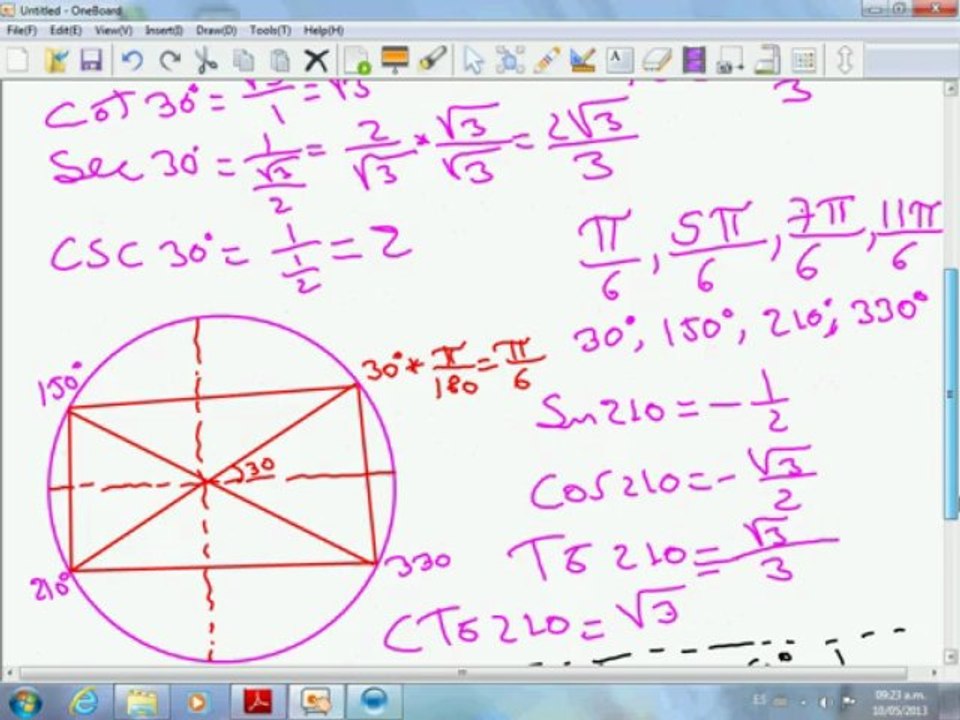 Untitled - OneBoard
File(F) Edit(E) View(V) Insert(I) Draw(D) Tools(T) Help(H)
Cot 30° = /1 = √3
3
Sec 30° = 1/(√3/2) = 2/√3 * √3/√3 = 2√3/3
CSC 30° = 1/(1/2) = 2
π/6, 5π/6, 7π/6, 11π/6
30°, 150°, 210°, 330°
150°
30° * π/180 = π/6
30
210°
330
Sen 210 = - 1/2
Cos 210 = - √3/2
TG 210 = √3/3
CTG 210 = √3
ES
09:23 a.m.
18/05/2013